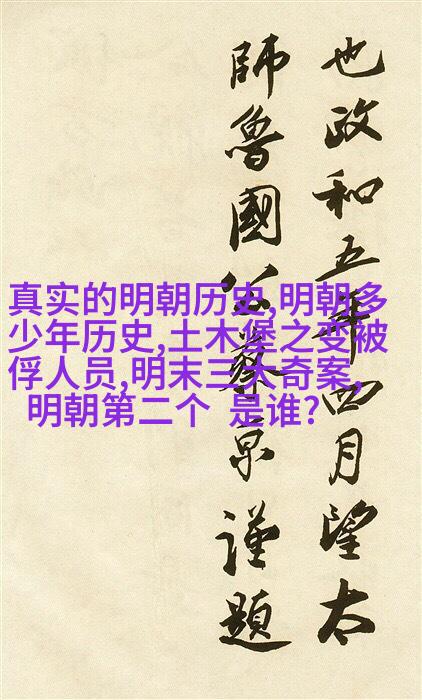 也政和五年四月望太
師魯國公蔡京謹題
真实的明朝历史,明朝多
少年历史,土木堡之变被
俘人员,明末三大奇案,
明朝第二个 是谁?